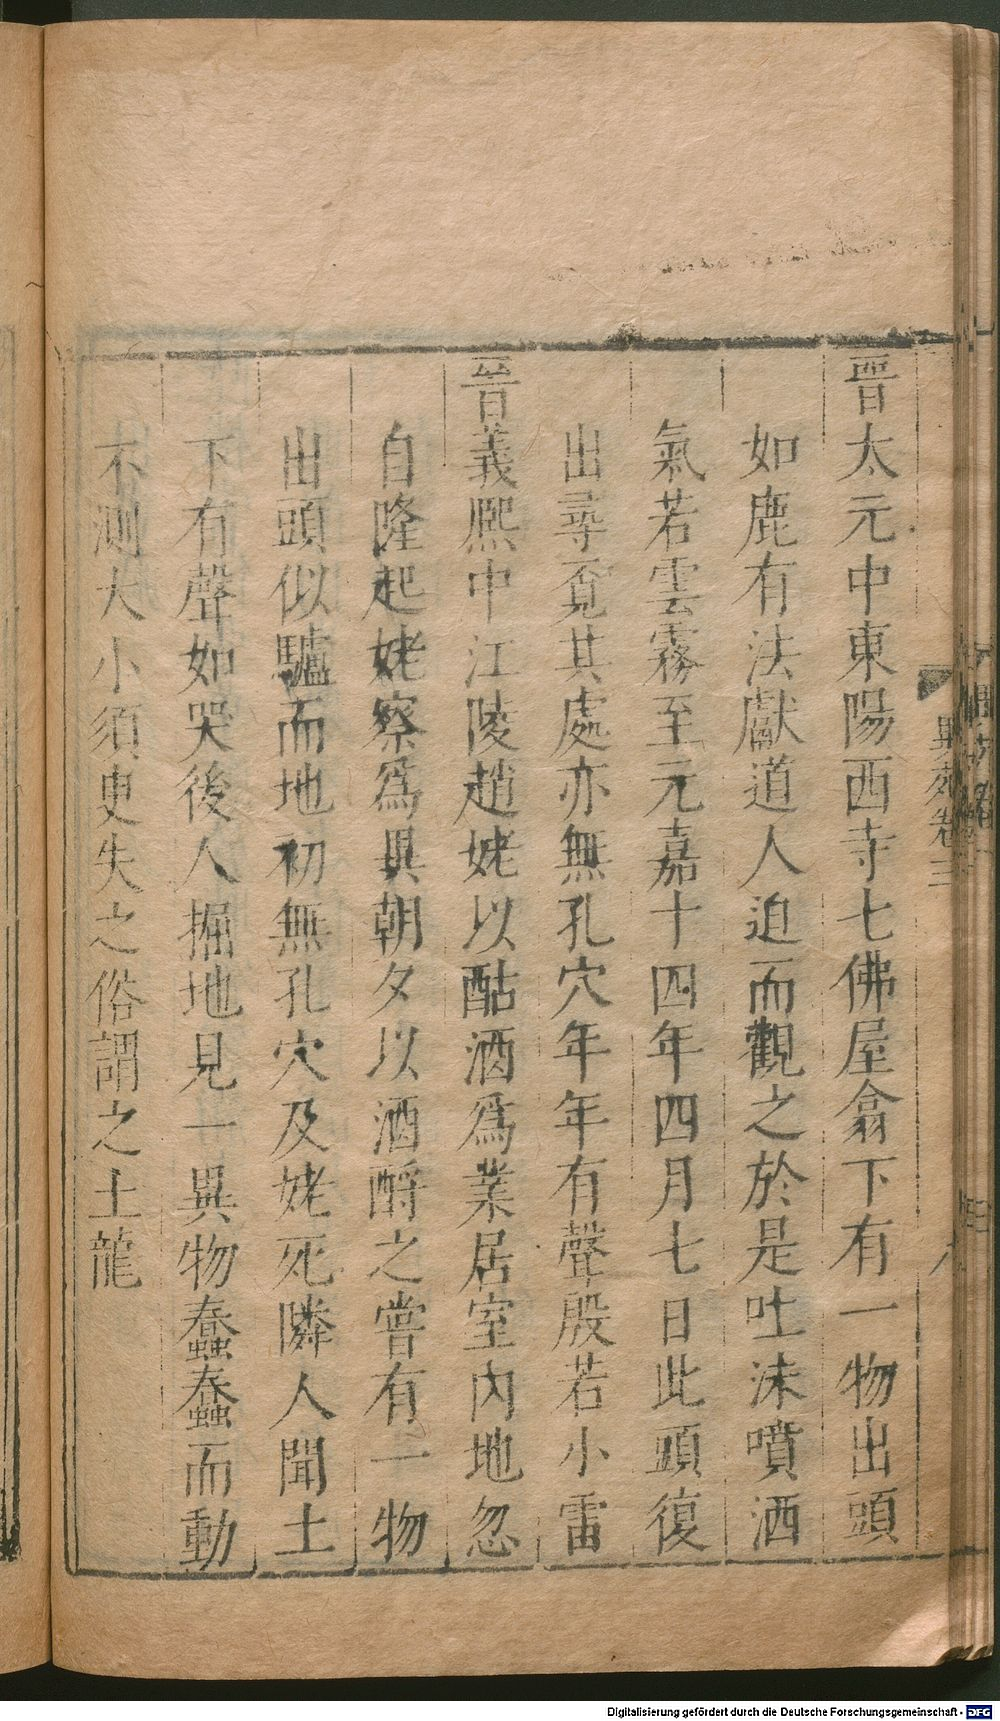 晉太元中東陽西寺七佛屋龕下有一物出頭
如鹿有法獻道人迫而觀之於是吐沫噴洒
氣若雲霧至元嘉十四年四月七日此頭復
出尋覓其處亦無孔穴年年有聲殷若小雷
晉義熙中江陵趙姥以酤酒爲業居室內地忽
自隆起姥察爲異朝夕以酒酹之嘗有一物
出頭似驢而地初無孔穴及姥死隣人聞土
下有聲如哭後人掘地見一異物蠢蠢而動
不測大小須臾失之俗謂之土龍
異苑卷三
Digitalisierung gefördert durch die Deutsche Forschungsgemeinschaft - DFG